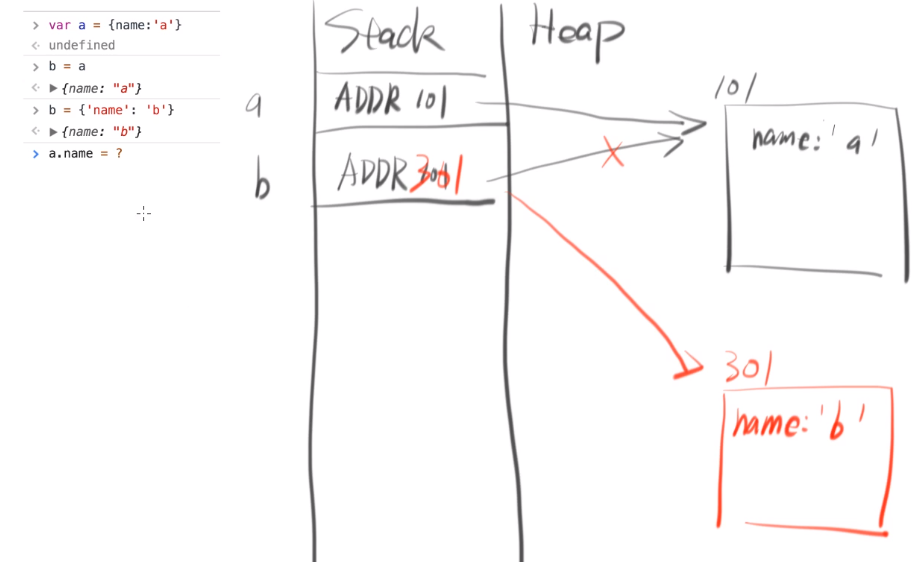 var a = {name:'a'}
undefined
b = a
{name: "a"}
b = {'name': 'b'}
{name: "b"}
a.name = ?
Stack
Heap
a
ADDR 101
101
name: 'a'
b
ADDR 301
301
name: 'b'